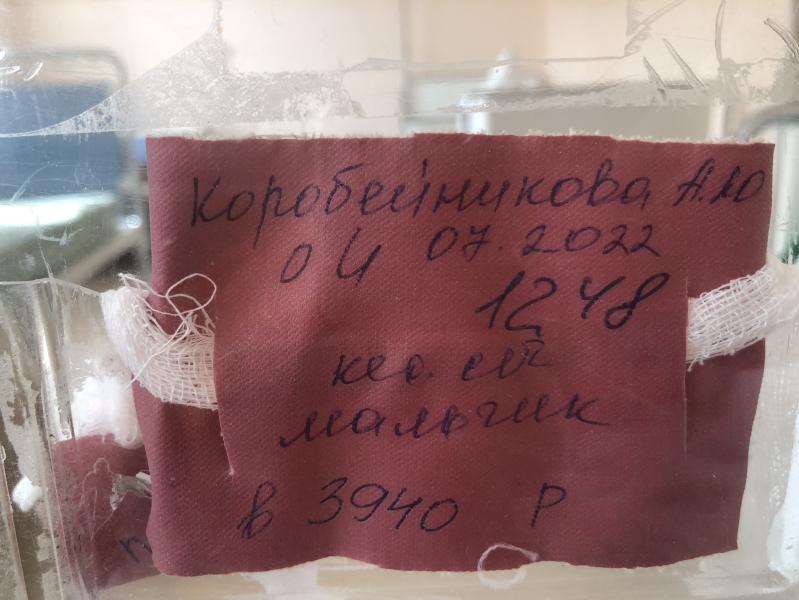 Коробейникова А.Ю
04 07.2022
12 48
кес. сеч
мальчик
в 3940 Р